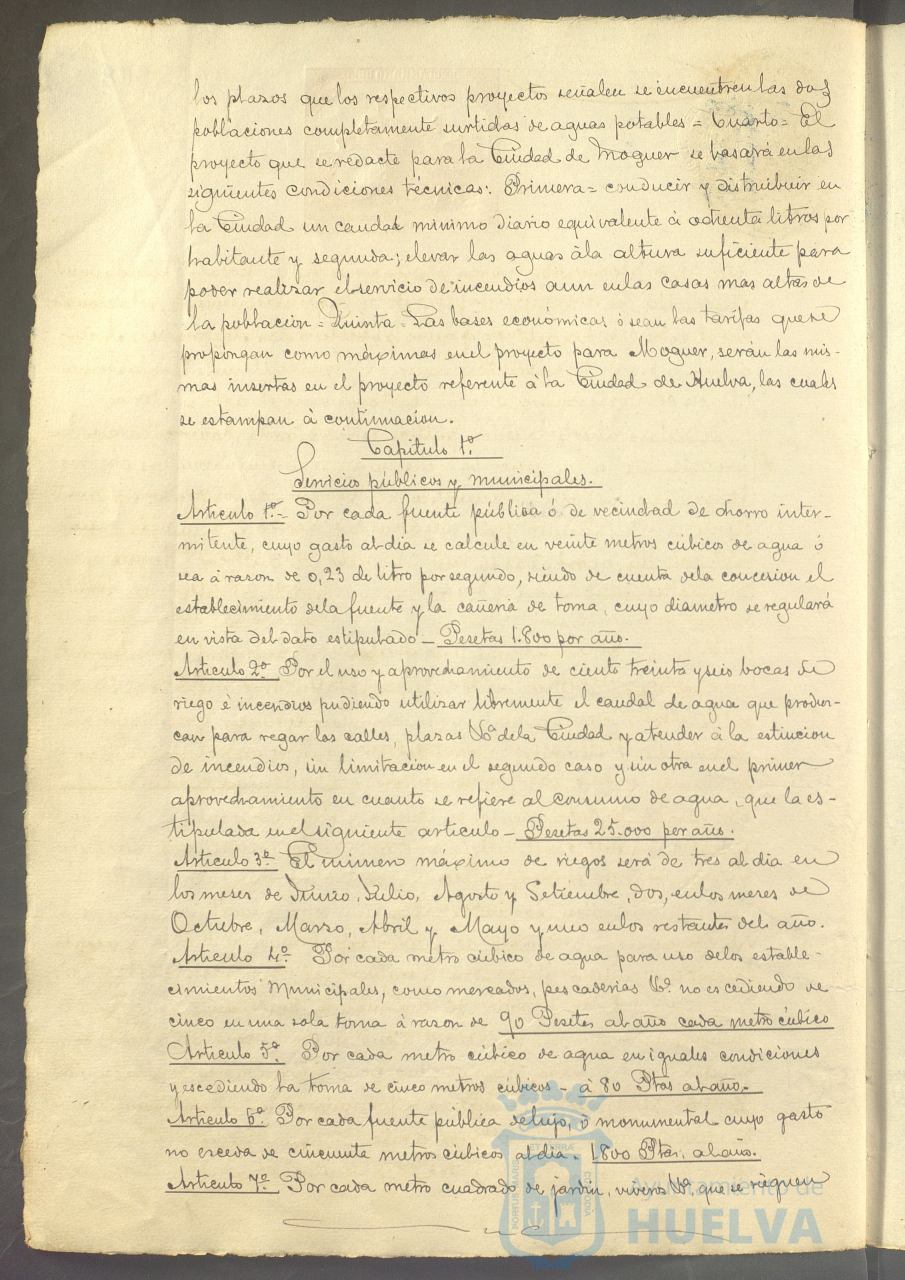 los plazos que los respectivos proyectos señalen se encuentren las dos
poblaciones completamente surtidas de aguas potables = Cuarto = El
proyecto que se redacte para la Ciudad de Moguer se basará en las
siguientes condiciones técnicas: Primera = conducir y distribuir en
la Ciudad un caudal minimo diario equivalente á ochenta litros por
habitante y segunda; elevar las aguas á la altura suficiente para
poder realizar el servicio de incendios aun en las casas mas altas de
la poblacion = Quinta = Las bases económicas ó sean las tarifas que se
propongan como máximas en el proyecto para Moguer, serán las mis-
mas insertas en el proyecto referente á la Ciudad de Huelva, las cuales
se estampan á continuacion.
Capitulo 1º.
Servicios públicos y municipales.
Articulo 1º = Por cada fuente pública ó de vecindad de chorro inter-
mitente, cuyo gasto al dia se calcule en veinte metros cúbicos de agua ó
sea á razon de 0,23 de litro por segundo, siendo de cuenta de la concesion el
establecimiento de la fuente y la cañeria de toma, cuyo diametro se regulará
en vista del dato estipulado - Pesetas 1.800 por año.
Articulo 2º Por el uso y aprovechamiento de ciento treinta y seis bocas de
riego é incendios pudiendo utilizar libremente el caudal de agua que produz-
can para regar las calles, plazas Vª de la Ciudad y atender á la estincion
de incendios, sin limitacion en el segundo caso y sin otra en el primer
aprovechamiento en cuanto se refiere al consumo de agua, que la es-
tipulada en el siguiente articulo - Pesetas 25.000 por año.
Articulo 3º El numero máximo de riegos será de tres al dia en
los meses de Junio, Julio, Agosto y Setiembre, dos, en los meses de
Octubre, Marzo, Abril y Mayo y uno en los restantes del año.
Articulo 4º Por cada metro cúbico de agua para uso de los estable-
cimientos Municipales, como mercados, pescaderias Vª no escediendo de
cinco en una sola toma á razon de 90 Pesetas al año cada metro cúbico
Articulo 5º Por cada metro cúbico de agua en iguales condiciones
y escediendo la toma de cinco metros cúbicos - á 80 Ptas al año.
Articulo 6º Por cada fuente pública de lujo, ó monumental cuyo gasto
no esceda de cincuenta metros cúbicos al dia. 1800 Ptas. al año.
Articulo 7º Por cada metro cuadrado de jardin, viveros Vª que se rieguen
Ayuntamiento de
HUELVA